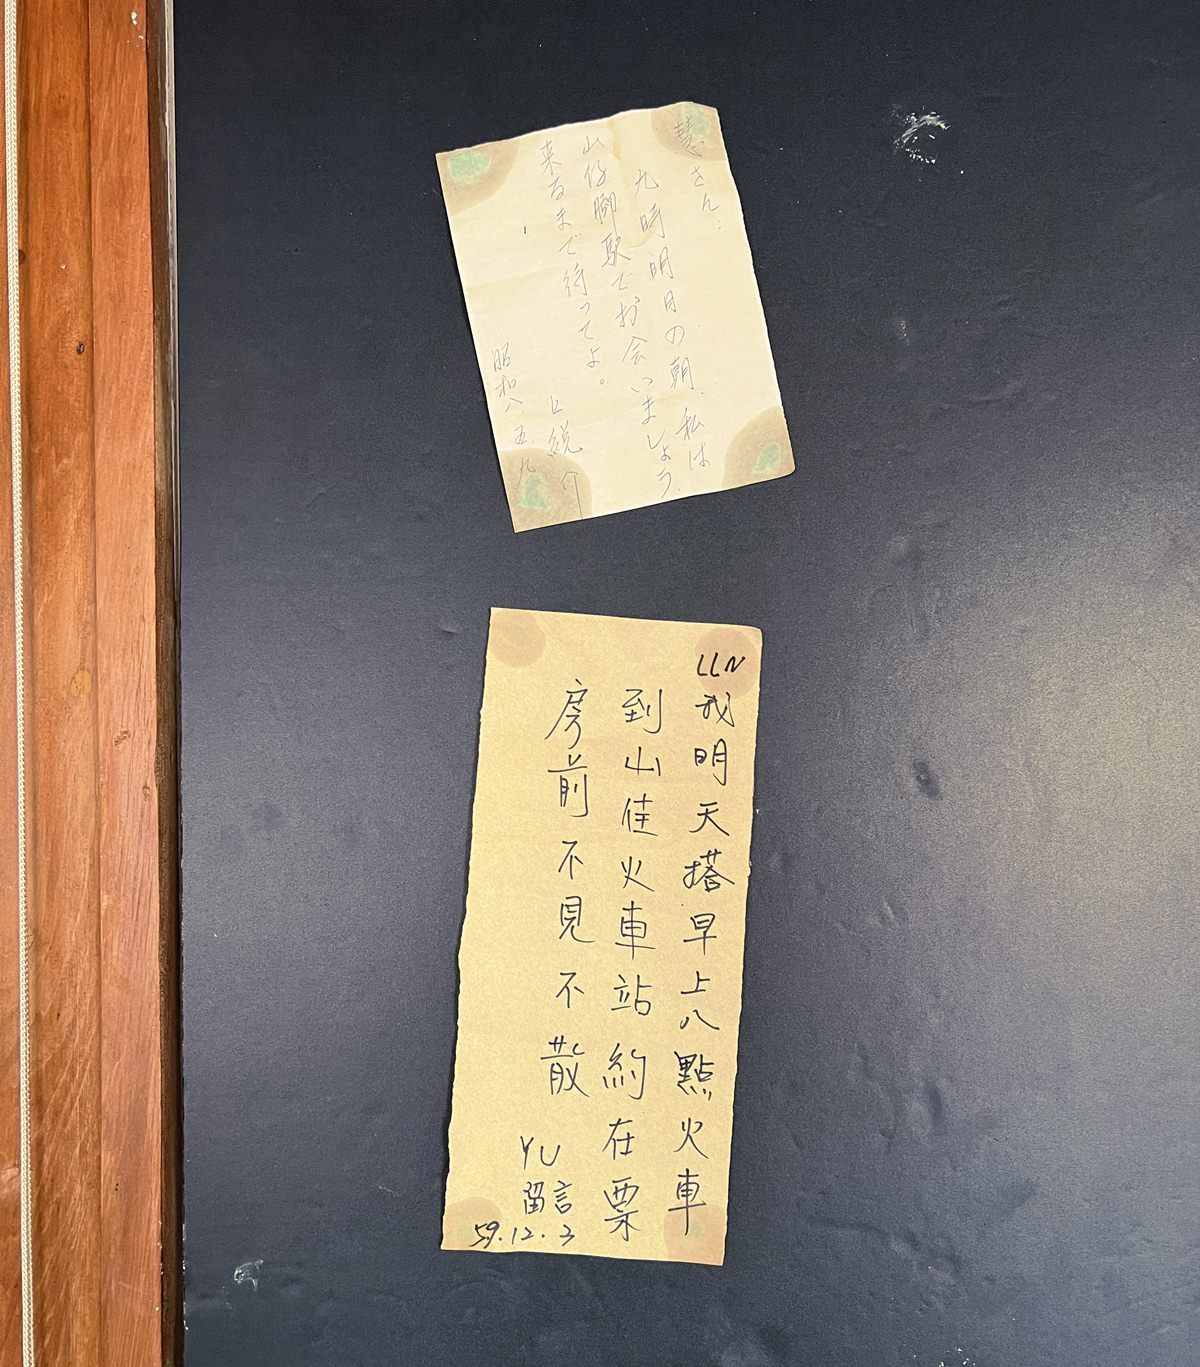 慧さん:
九時明日の朝、私は
山仔脚駅でお会いましょう
来るまで待ってよ。
昭和八 五.九
LLN
我明天搭早上八點火車
到山佳火車站約在票
房前不見不散
YU
留言
59.12.3